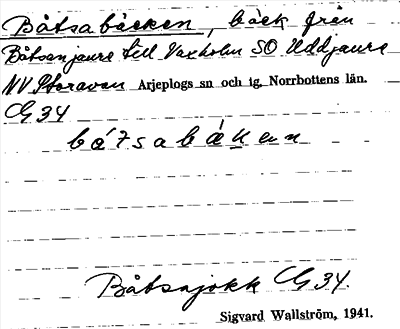 Båtsabäcken, bäck från
Båtsanjaure till Vaxholm SO Uddjaure
NV Storavan Arjeplogs sn och tg, Norrbottens län.
CG 34
Båtsajokk CG 34.
Sigvard Wallström, 1941.